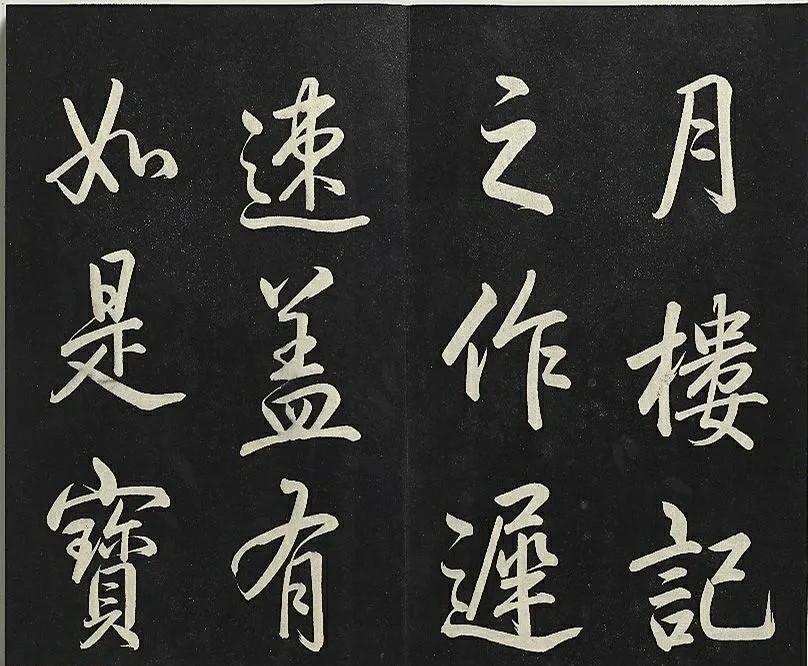 月樓記
之作遲
速盖有
如是寶